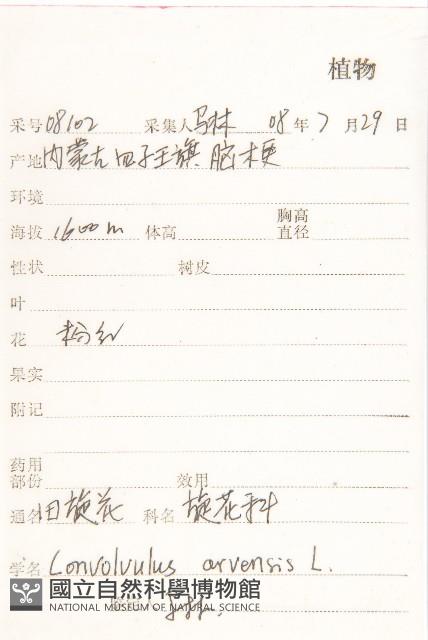 植物
采号 08102 采集人 马林 08年7月29日
产地 内蒙古四子王旗脑木更
环境
海拔 1600m 体高 胸高直径
性状 树皮
叶
花 粉红
果实
附记
药用部份 效用
通名 田旋花 科名 旋花科
学名 Convolvulus arvensis L.
國立自然科學博物館
NATIONAL MUSEUM OF NATURAL SCIENCE